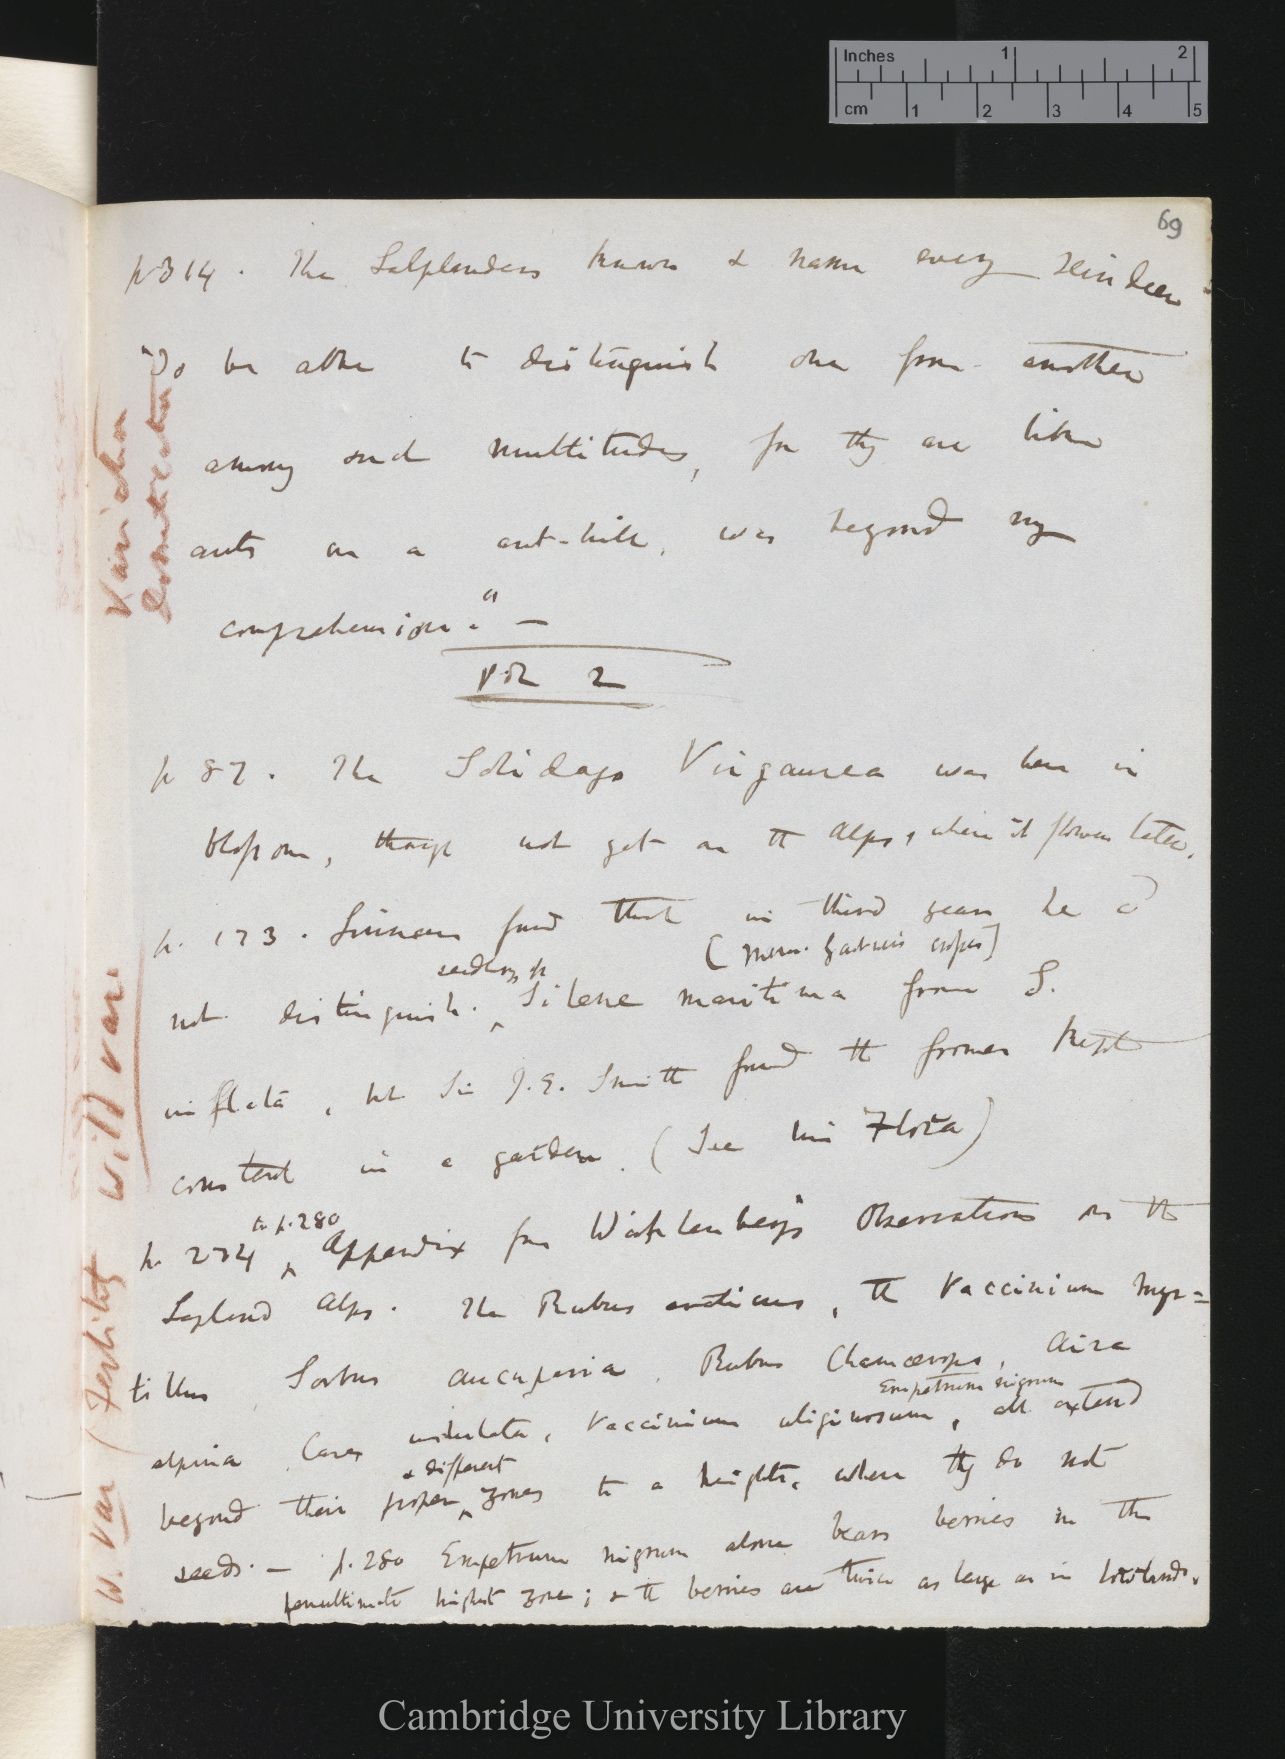 Inches 1 2
cm 1 2 3 4 5
69
p 314. The Laplanders knows & name every Reindeer
"To be able to distinguish one from another
among such multitudes, for they are like
ants on a ant-hill, was beyond my
comprehension." —
Vol 2
p 87. The Solidago Virgaurea was here in
blossom, though not yet on the Alps, where it flowers later.
p. 173. Linnaeus found that in third year he cd
[ ]
seedlings
not distinguish. Silene maritima from S.
inflata, but Sir J. E. Smith found the former kept
constant in a garden. (See his Flora)
to p. 280
p. 274 Appendix from Wahlenberg's Observations on the
Lapland Alps. The Rubus arcticus, the Vaccinium myr=
tillus Sorbus aucuparia, Rubus Chamaemorus, Aira
Empetrum nigrum
alpina Carex, Vaccinium uliginosum, all extend
& different
beyond their proper zones to a height, where they do not
seeds. — p. 280 Empetrum nigrum alone bears berries in the
penultimate highest zone; & the berries are twice as large as in lowlands.
Variation
Domestication
W. Var (Fertility will vary.
Cambridge University Library